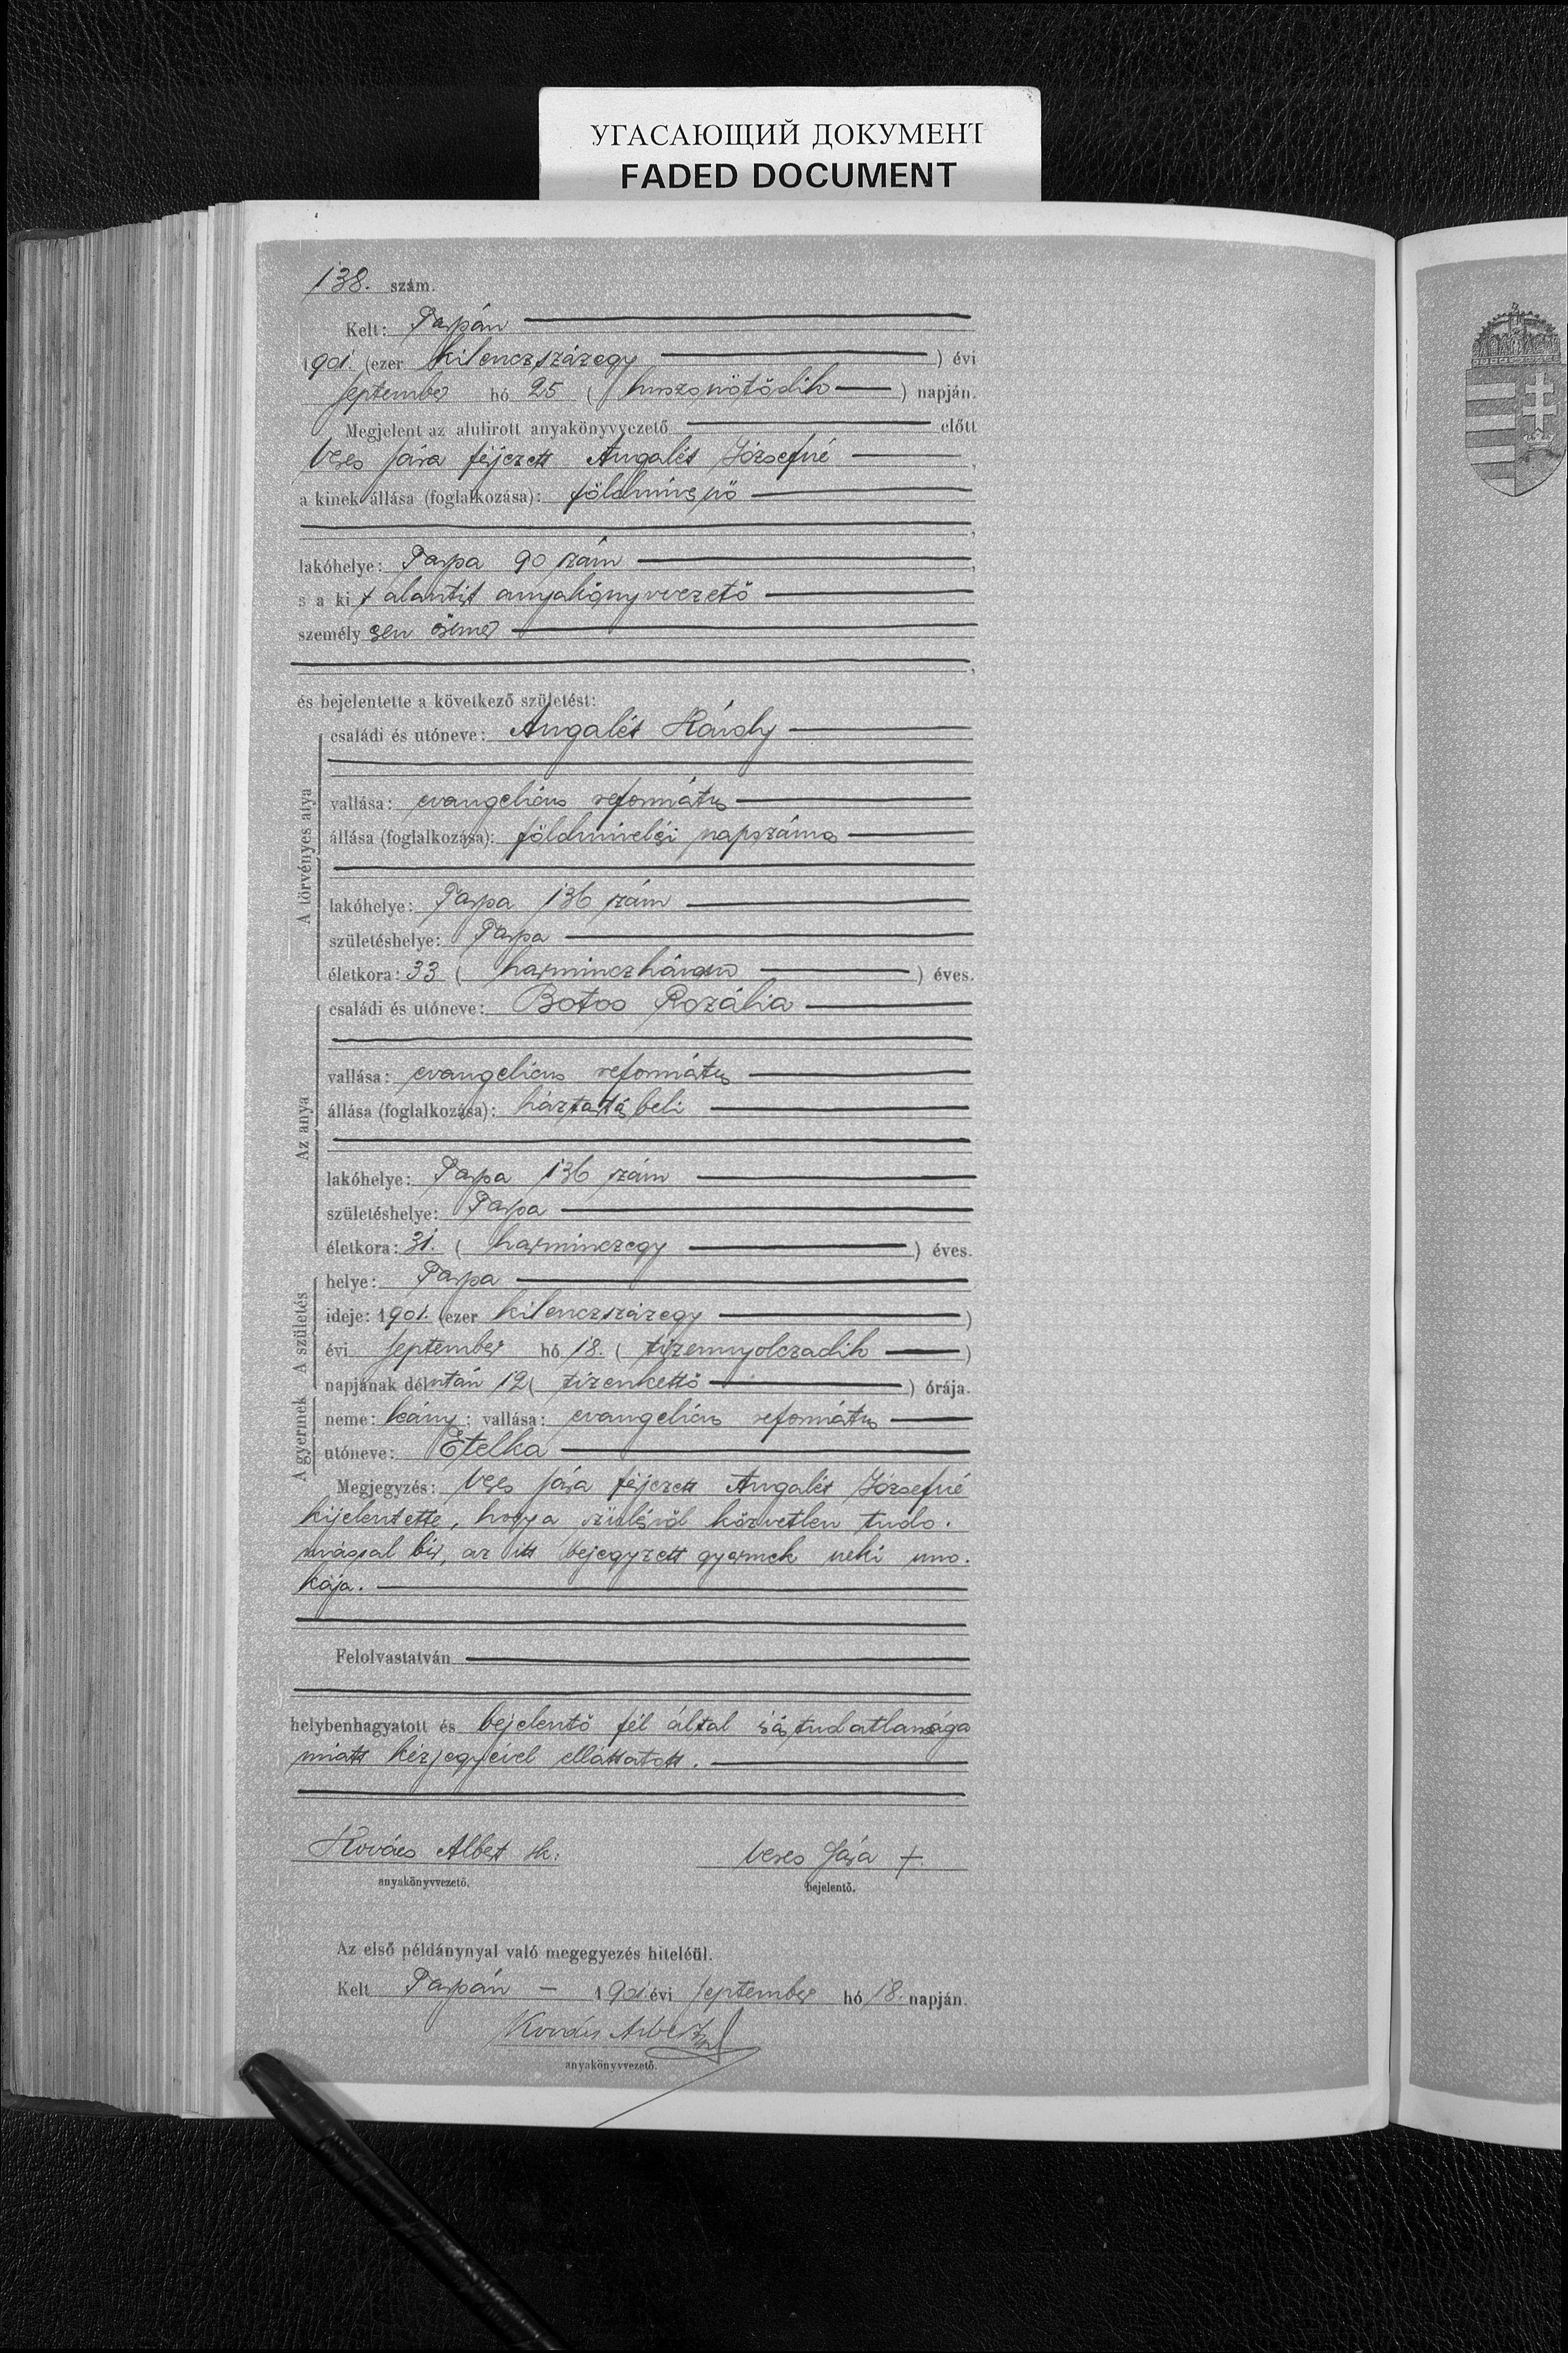 УГАСАЮЩИЙ ДОКУМЕНТ
FADED DOCUMENT
138. szám.
Kelt: Tarpán
1901. (ezer kilenczszázegy ) évi
september hó 25 ( huszonötödik ) napján.
Megjelent az alulirott anyakönyvvezető előtt
Veres Sára férjezett Angalét Józsefné ,
a kinek állása (foglalkozása): földmíves nő
,
lakóhelye: Tarpa 90 szám ,
s a kit alantirt anyakönyvvezető
személyesen ösmer
,
és bejelentette a következő születést:
A törvényes atya
családi és utóneve: Angalét Károly
vallása: evangelicus református
állása (foglalkozása): földmivelési napszámos
lakóhelye: Tarpa 136 szám
születéshelye: Tarpa
életkora: 33 ( harminczhárom ) éves.
Az anya
családi és utóneve: Botos Rozália
vallása: evangelicus református
állása (foglalkozása): háztartásbeli
lakóhelye: Tarpa 136 szám
születéshelye: Tarpa
életkora: 31. ( harminczegy ) éves.
A születés
helye: Tarpa
ideje: 1901. (ezer kilenczszázegy )
évi september hó 18. ( tizennyolczadik )
napjának délután 12 ( tizenkettő ) órája.
A gyermek
neme: leány; vallása: evangelicus református
utóneve: Etelka
Megjegyzés: Veres Sára férjezett Angalét Józsefné
kijelentette, hogy a szülésről közvetlen tudo.
mással bir, az itt bejegyzett gyermek neki uno.
kája.
Felolvastatván
helybenhagyatott és bejelentő fél által irástudatlansága
miatt kézjegyével elláttatott.
Kovács Albert sk. Veres Sára +.
anyakönyvvezető. bejelentő.
Az első példánynyal való megegyezés hiteléül.
Kelt Tarpán – 1901 évi september hó 18. napján.
Kovács Albert
anyakönyvvezető.